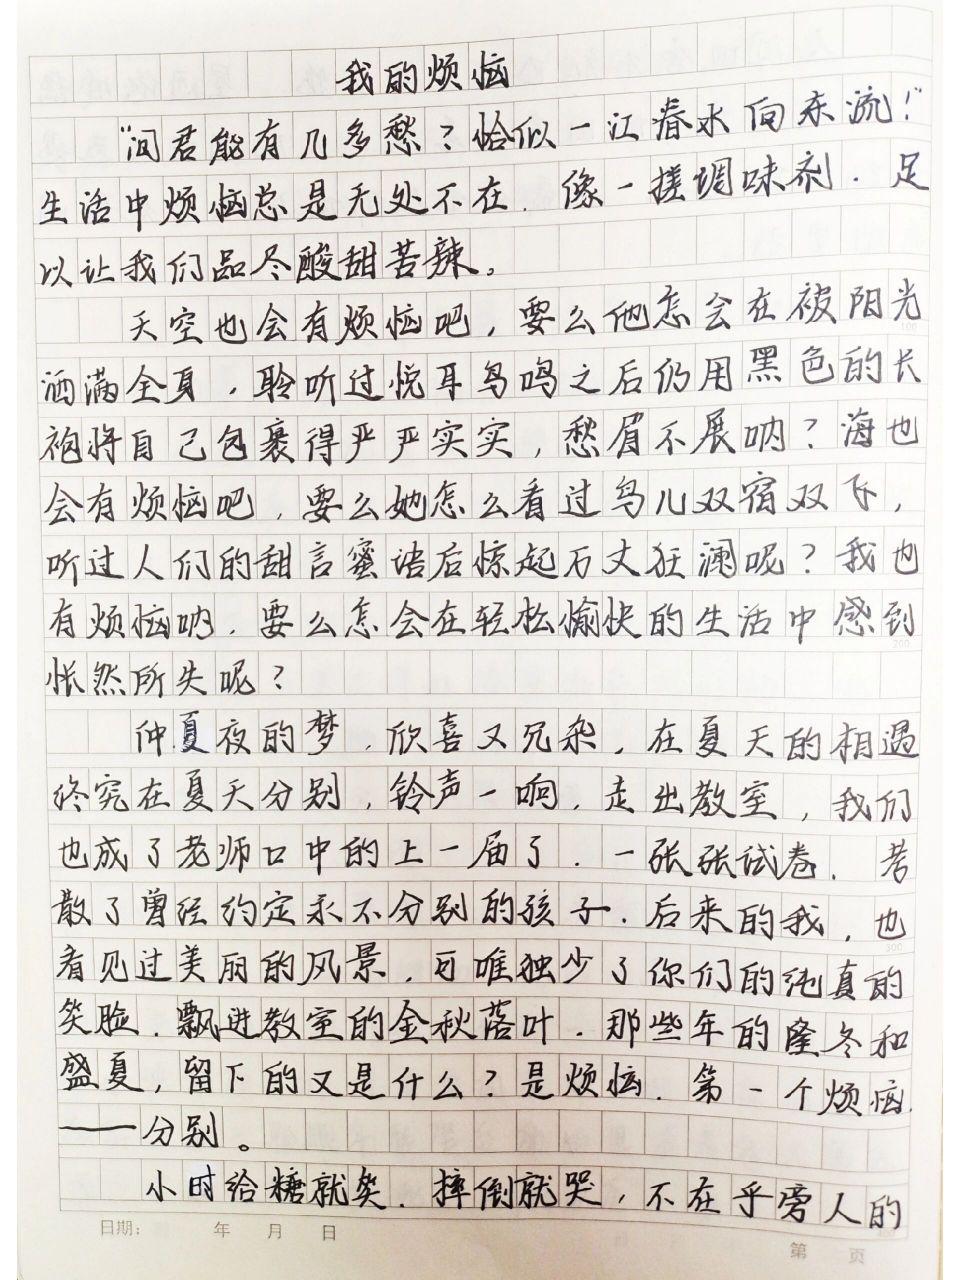 我的烦恼
“问君能有几多愁？恰似一江春水向东流！”
生活中烦恼总是无处不在．像一搓调味剂．足
以让我们品尽酸甜苦辣。
天空也会有烦恼吧，要么他怎会在被阳光
洒满全身，聆听过悦耳鸟鸣之后仍用黑色的长
袍将自己包裹得严严实实，愁眉不展呐？海也
会有烦恼吧，要么她怎么看过鸟儿双宿双飞，
听过人们的甜言蜜语后惊起万丈狂澜呢？我也
有烦恼呐．要么怎会在轻松愉快的生活中感到
怅然所失呢？
仲夏夜的梦．欣喜又冗杂，在夏天的相遇
终究在夏天分别，铃声一响，走出教室，我们
也成了老师口中的上一届了．一张张试卷．考
散了曾经约定永不分别的孩子．后来的我，也
看见过美丽的风景，可唯独少了你们的纯真的
笑脸．飘进教室的金秋落叶．那些年的隆冬和
盛夏，留下的又是什么？是烦恼．第一个烦恼．
——分别。
小时给糖就笑．摔倒就哭，不在乎旁人的
日期： 年 月 日
第 页
100
200
300